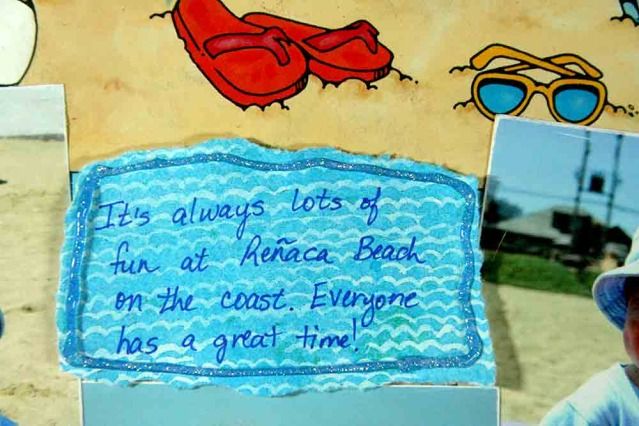 It's always lots of
fun at Reñaca Beach
on the coast. Everyone
has a great time!